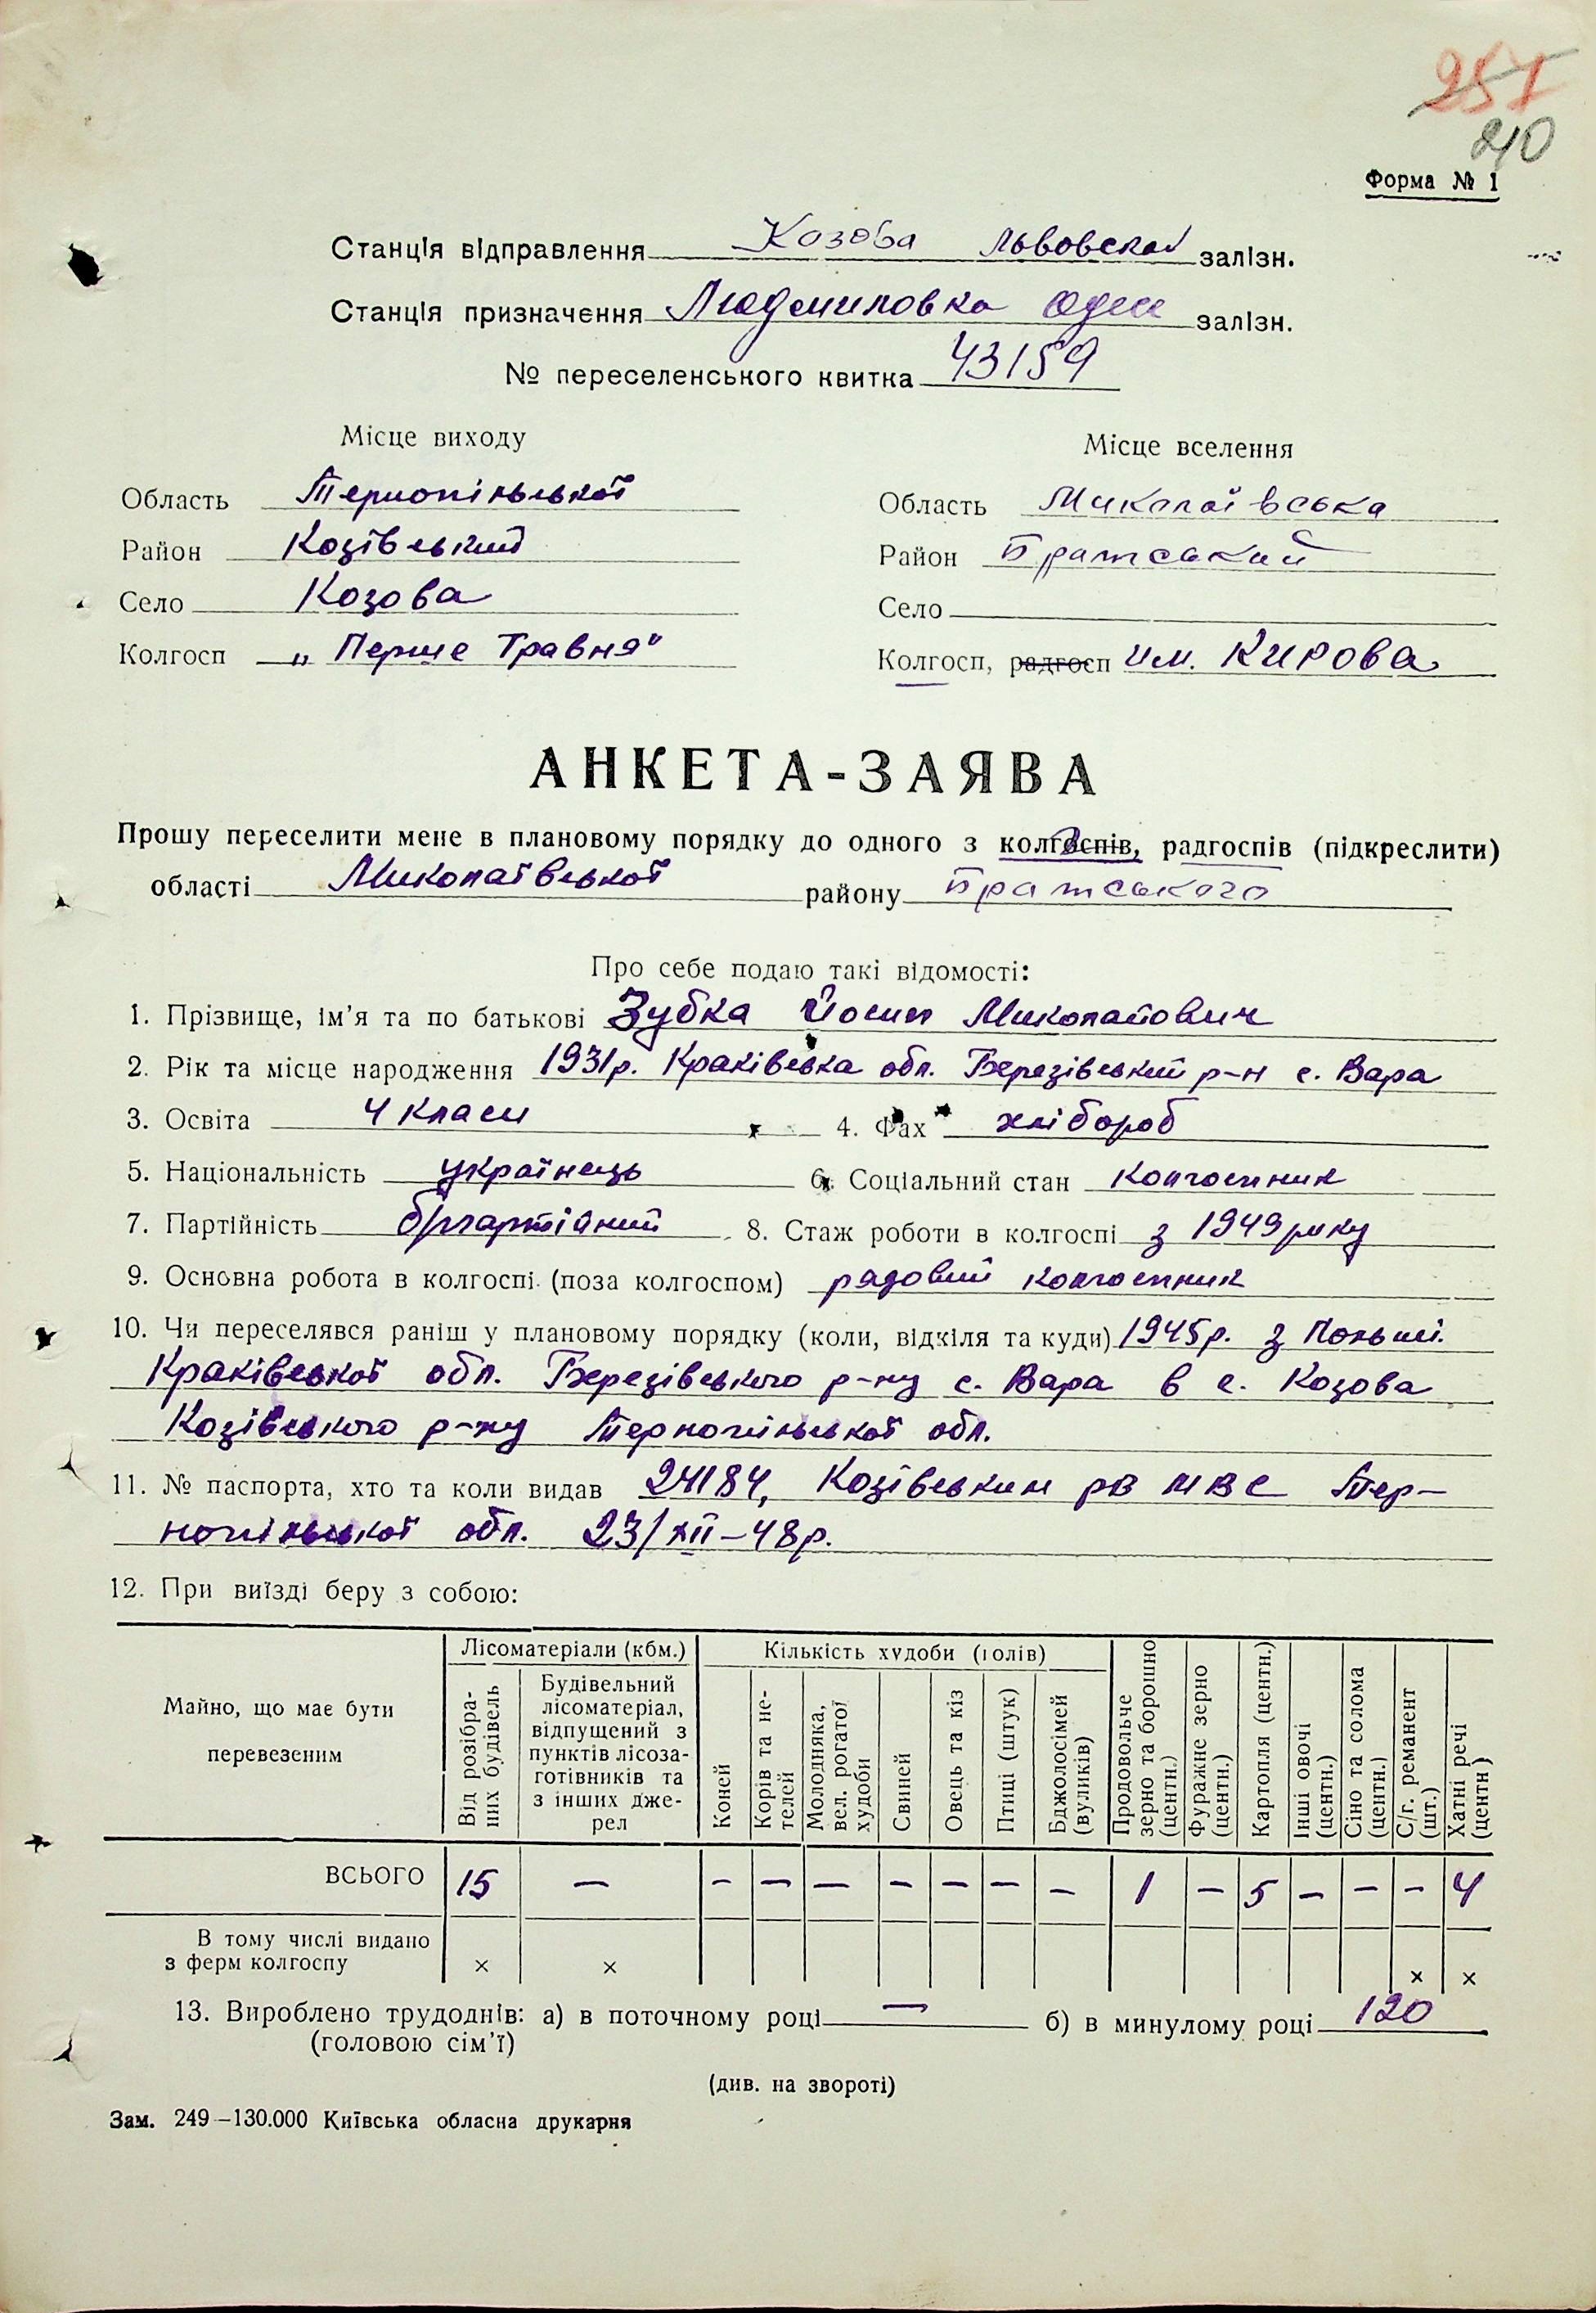 257
210
Форма № 1
Станція відправлення Козова Львовской залізн.
Станція призначення Людмиловка Одес залізн.
№ переселенського квитка 43159
Місце виходу
Місце вселення
Область Тернопільської
Область Миколаївська
Район Козівський
Район Братський
Село Козова
Село
Колгосп „Перше Травня"
Колгосп, радгосп им. Кирова
АНКЕТА-ЗАЯВА
Прошу переселити мене в плановому порядку до одного з колгоспів, радгоспів (підкреслити)
області Миколаївської району Братського
Про себе подаю такі відомості:
1. Прізвище, ім'я та по батькові Зубка Йосип Миколайович
2. Рік та місце народження 1931р. Краківська обл. Березівський р-н с. Вара
3. Освіта 4 класи 4. Фах хлібороб
5. Національність українець 6. Соціальний стан колгоспник
7. Партійність б/партійний 8. Стаж роботи в колгоспі з 1949 року
9. Основна робота в колгоспі (поза колгоспом) рядовий колгоспник
10. Чи переселявся раніш у плановому порядку (коли, відкіля та куди) 1945р. з Польші.
Краківської обл. Березівського р-ну с. Вара в с. Козова
Козівського р-ну Тернопільської обл.
11. № паспорта, хто та коли видав 24184, Козівським РВ МВС Тер-
нопільської обл. 23/XII-48р.
12. При виїзді беру з собою:
Майно, що має бути перевезеним
Лісоматеріали (кбм.)
Кількість худоби (голів)
Від розібра-
них будівель
Будівельний
лісоматеріал,
відпущений з
пунктів лісоза-
готівників та
з інших дже-
рел
Коней
Корів та не-
телей
Молодняка,
вел. рогатої
худоби
Свиней
Овець та кіз
Птиці (штук)
Бджолосімей
(вуликів)
Продовольче
зерно та борошно
(центн.)
Фуражне зерно
(центн.)
Картопля (центн.)
Інші овочі
(центн.)
Сіно та солома
(центн.)
С/г. реманент
(шт.)
Хатні речі
(центн)
ВСЬОГО 15 — — — — — — — — 1 — 5 — — — 4
В тому числі видано
з ферм колгоспу × × × ×
13. Вироблено трудоднів: а) в поточному році — б) в минулому році 120
(головою сім'ї)
(див. на звороті)
Зам. 249–130.000 Київська обласна друкарня